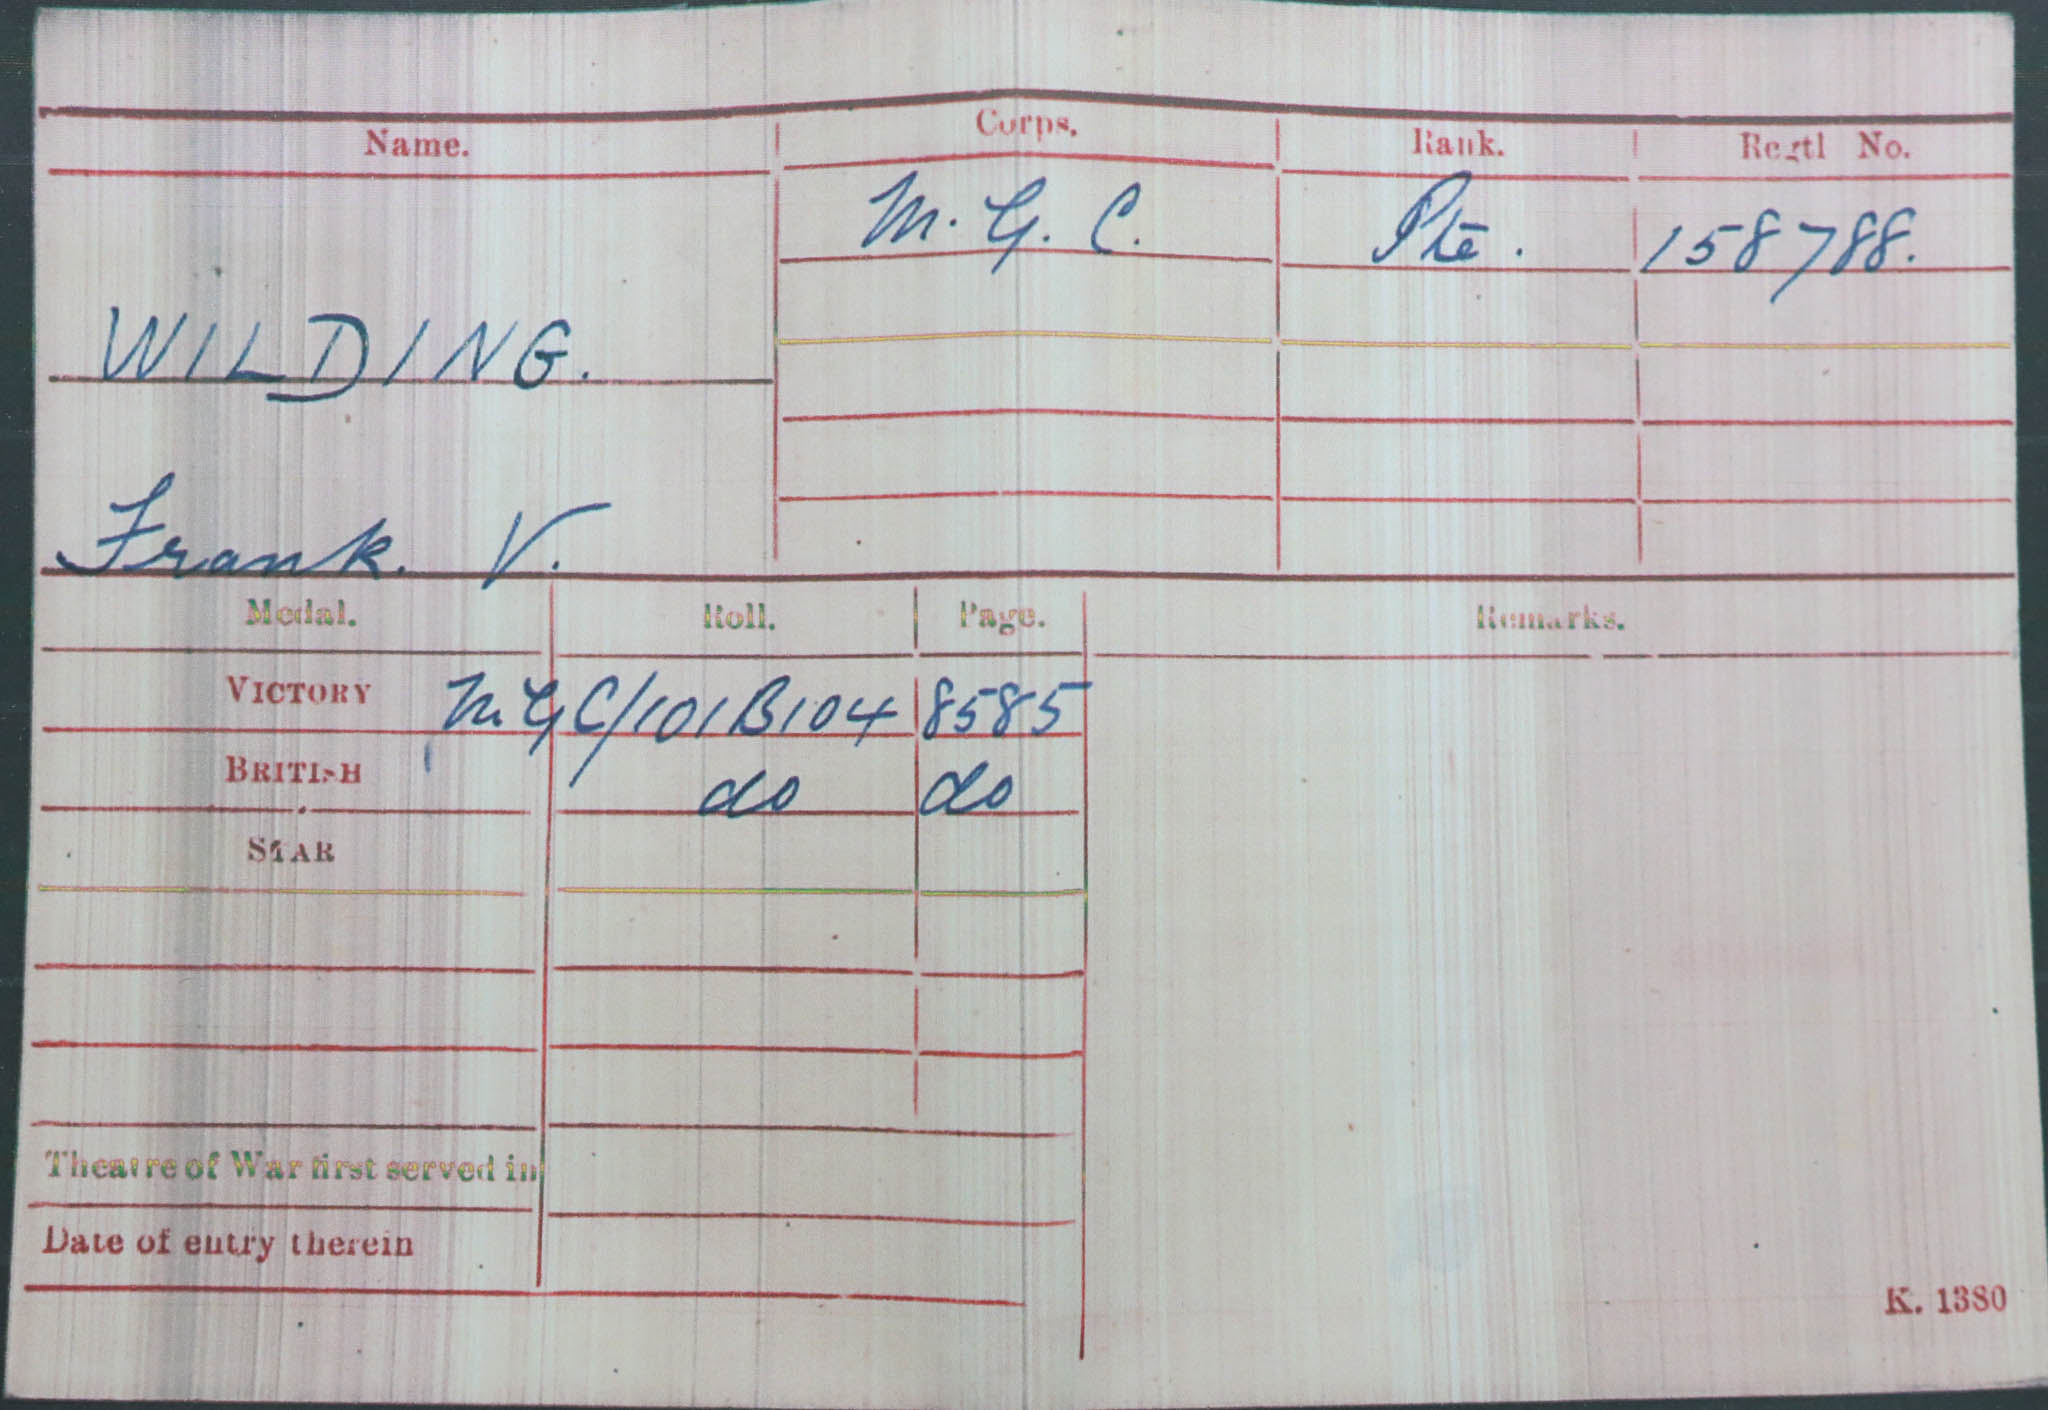 Name. Corps. Rank. Regtl No.
M. G. C. Pte. 158788.
WILDING.
Frank. V.
Medal. Roll. Page. Remarks.
VICTORY MGC/101B104 8585
BRITISH do do
STAR
Theatre of War first served in
Date of entry therein
K. 1380